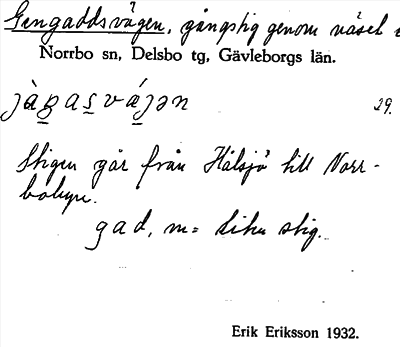 Gengaddsvägen, gångstig genom väsel
Norrbo sn, Delsbo tg, Gävleborgs län.
29.
Stigen går från Hålsjö till Norr-
bobyn.
gad, m = liten stig.
Erik Eriksson 1932.